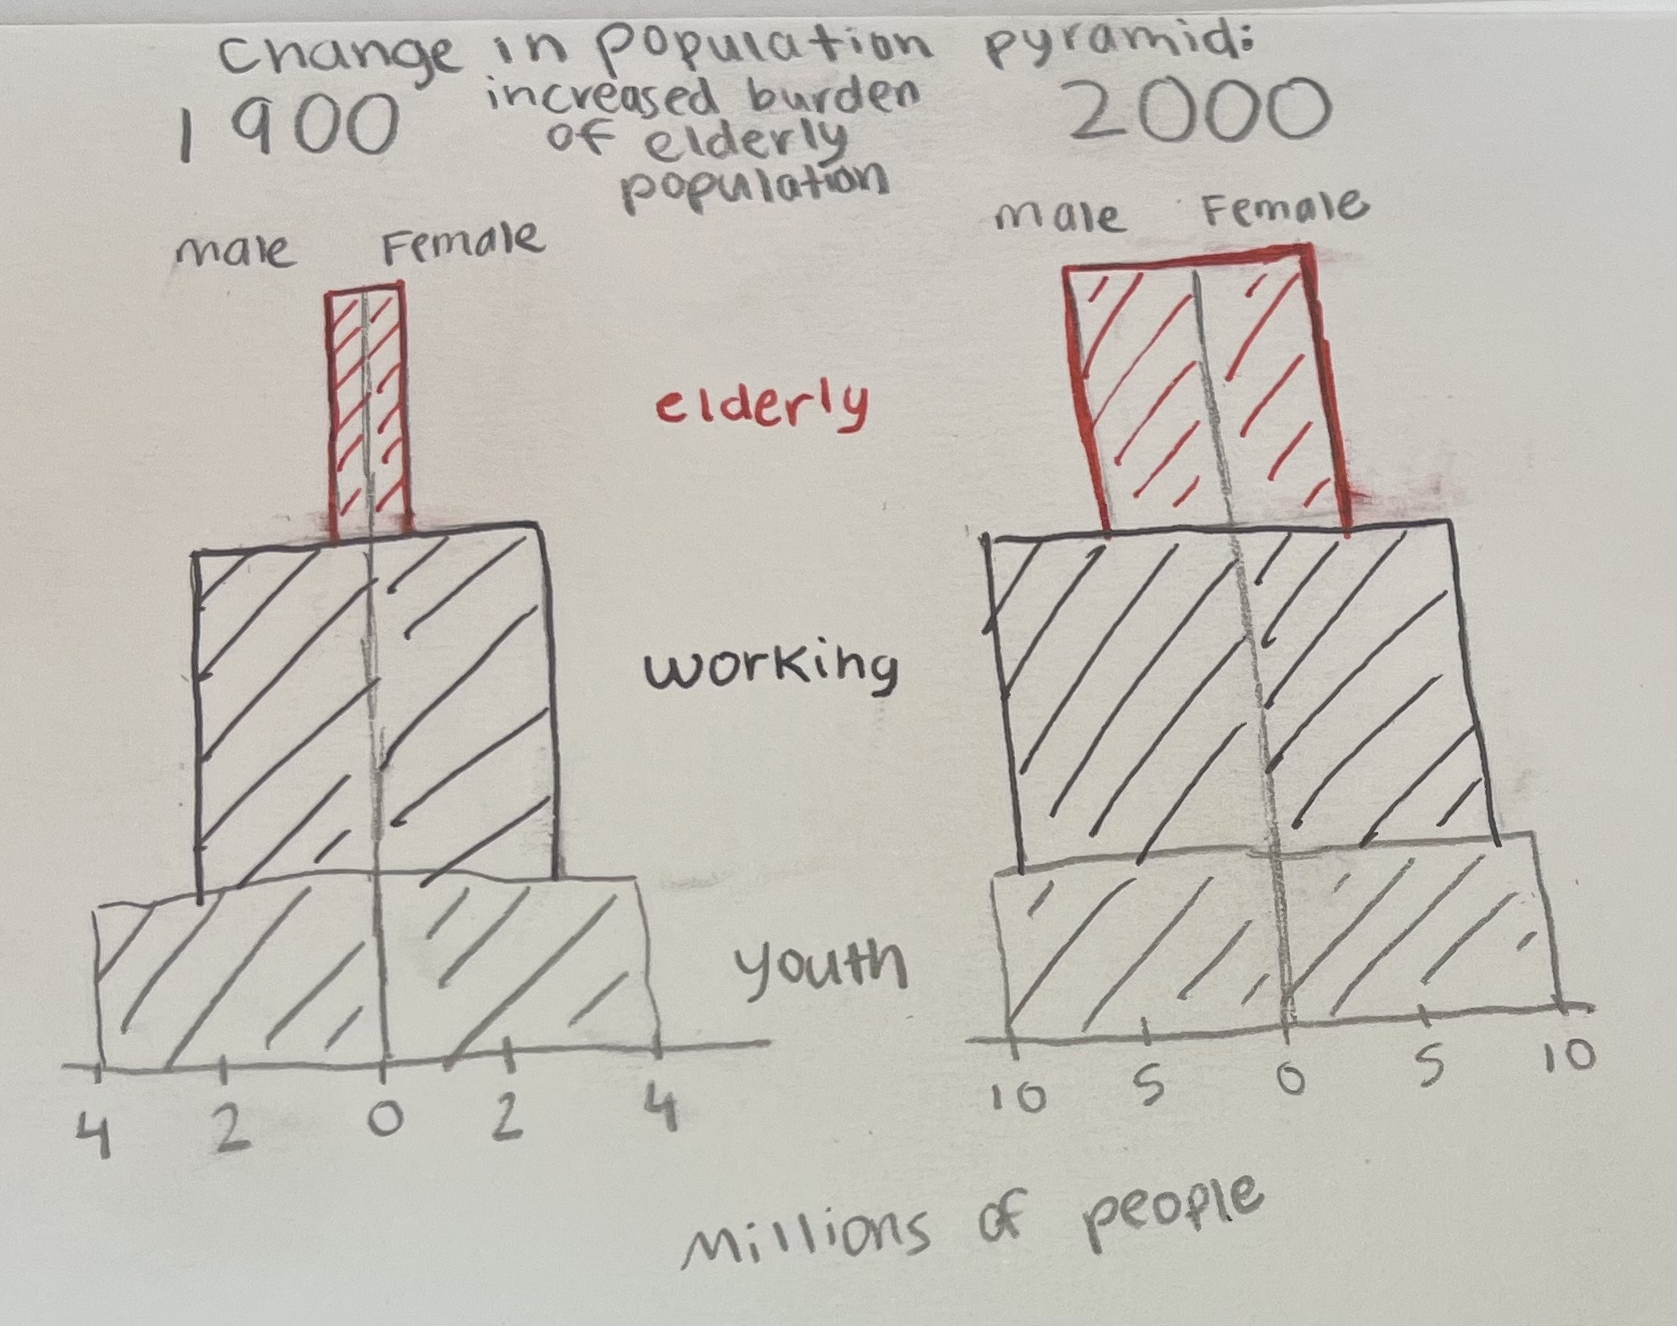 Change in population pyramid:
1900 increased burden 2000
of elderly
population
male Female male Female
elderly
working
youth
4 2 0 2 4 10 5 0 5 10
Millions of people